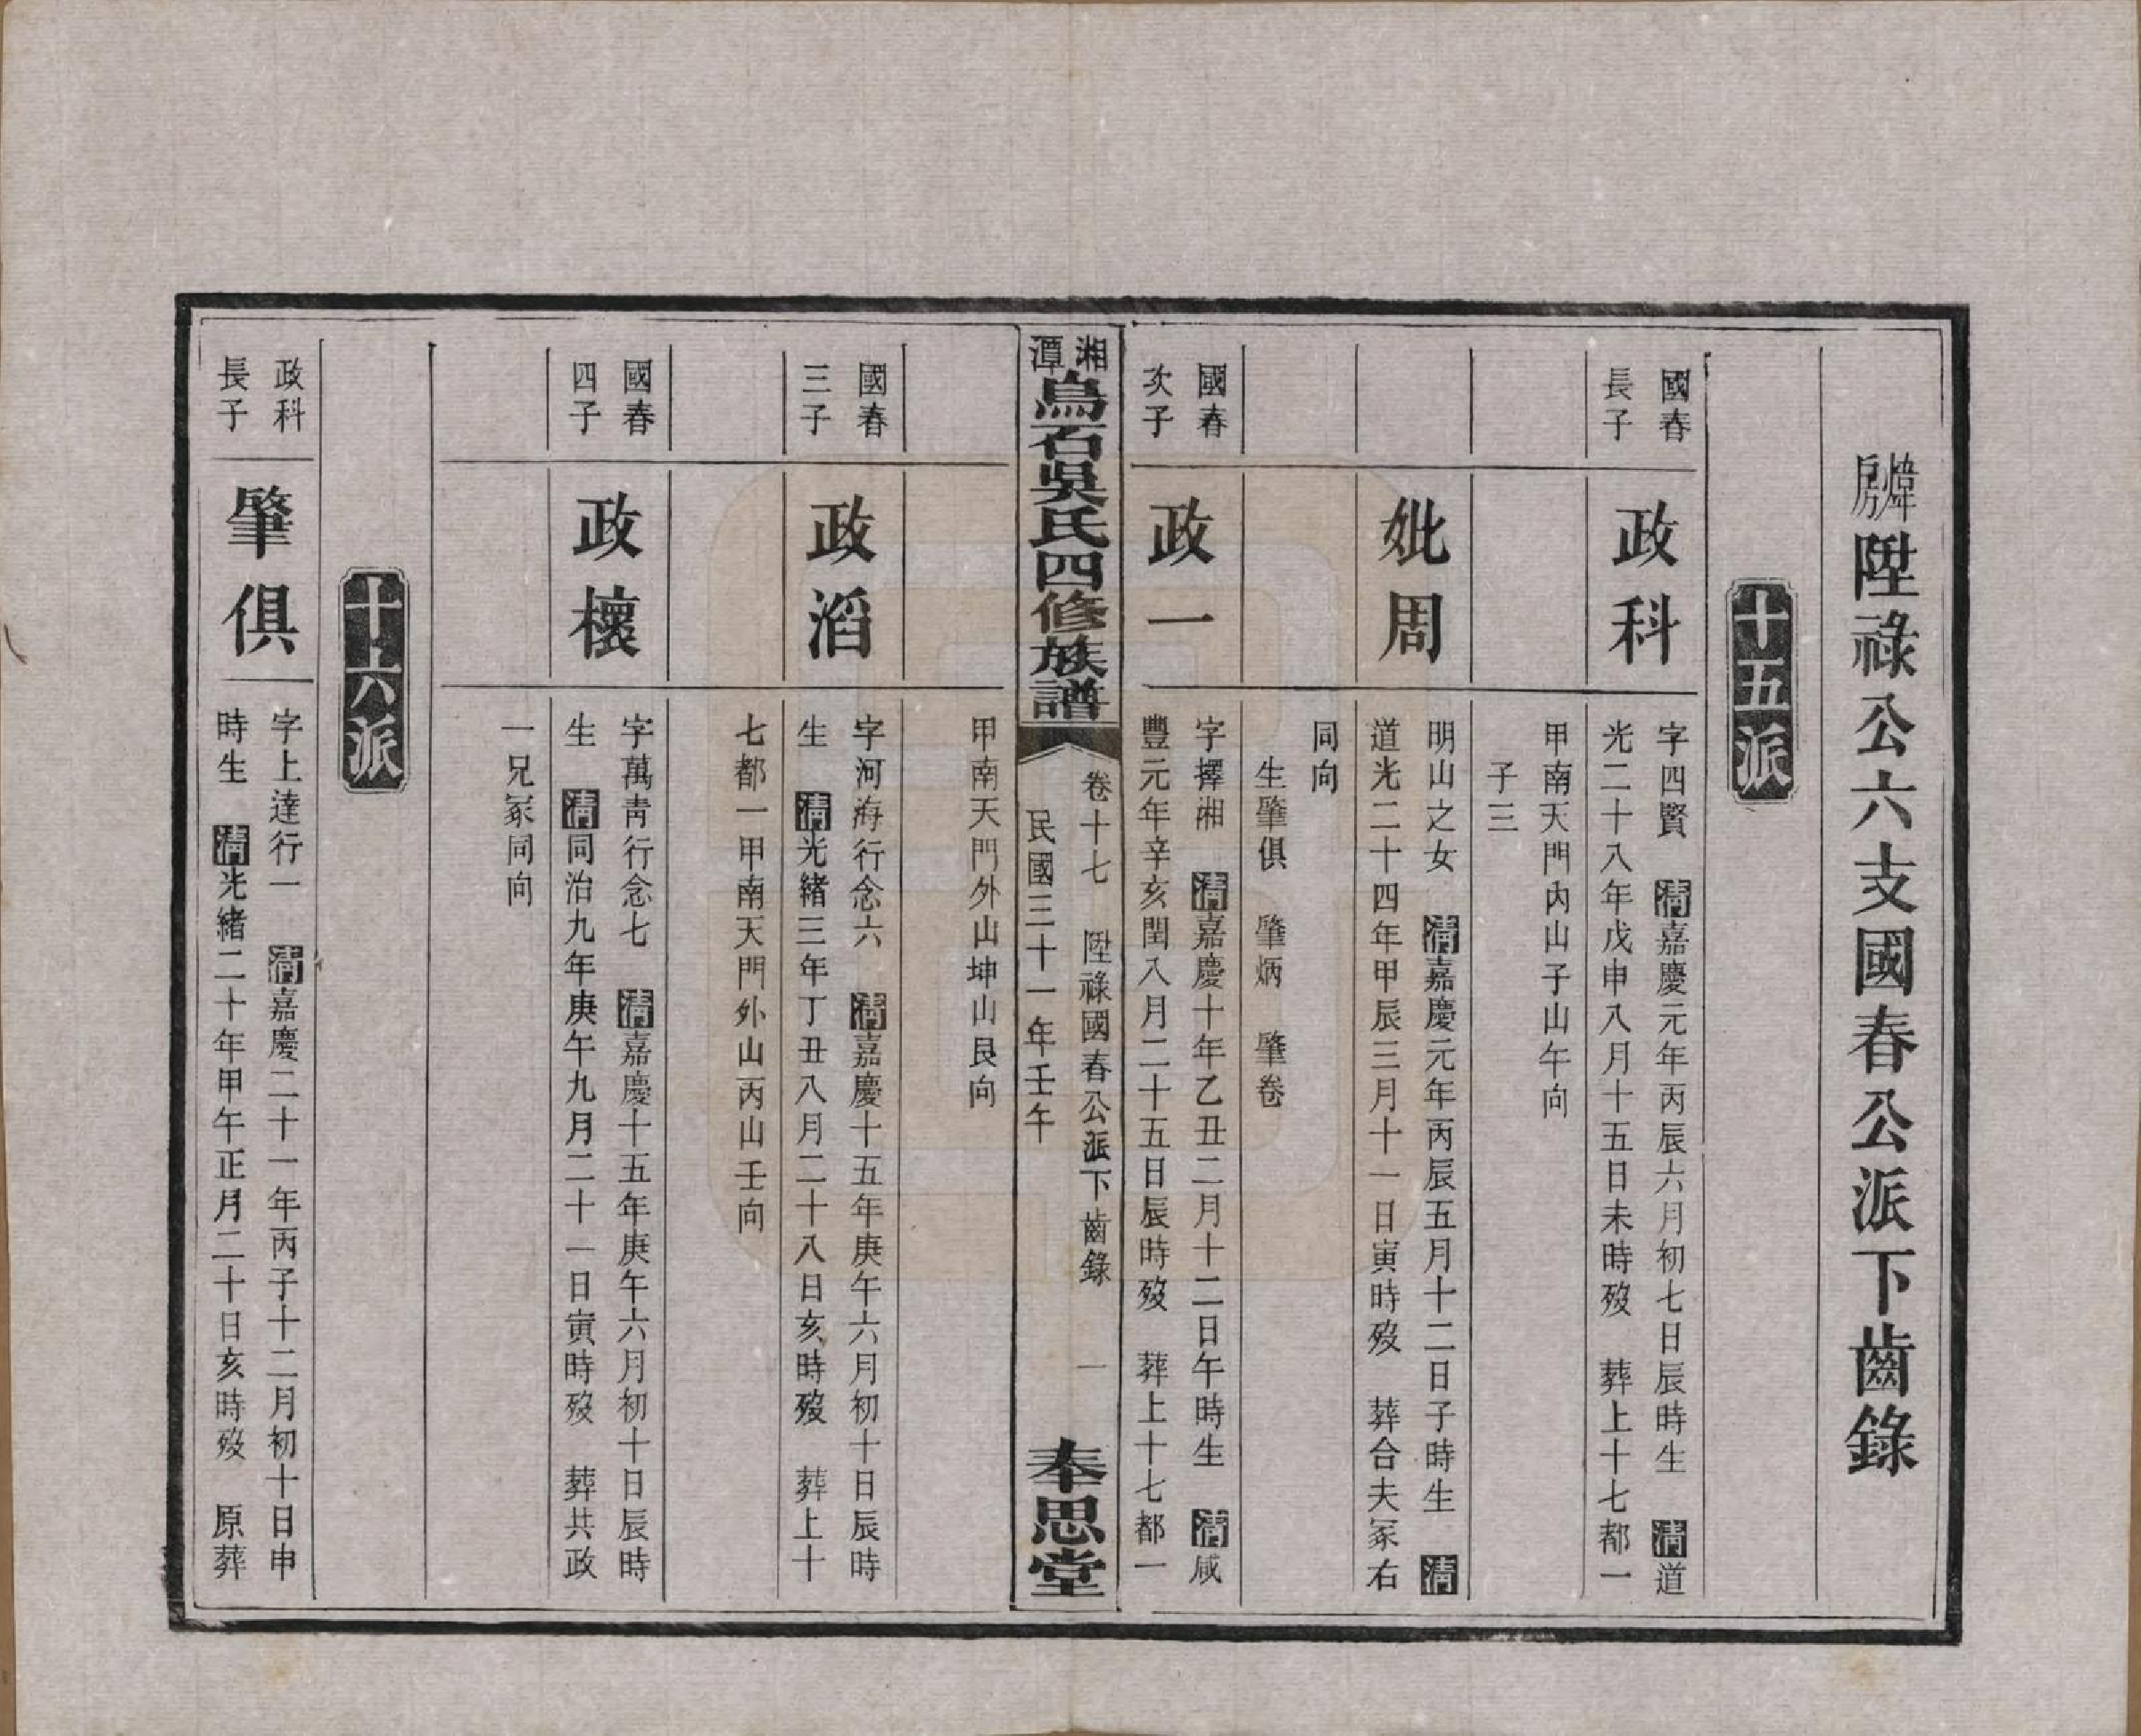 煒房陞祿公六支國春公派下齒錄
十五派
國春
長子
政科
字四賢　清嘉慶元年丙辰六月初七日辰時生　清道
光二十八年戊申八月十五日未時歿　葬上十七都一
甲南天門內山子山午向
子三
妣周
明山之女　清嘉慶元年丙辰五月十二日子時生　清
道光二十四年甲辰三月十一日寅時歿　葬合夫冢右
同向
生肇俱　肇炳　肇卷
國春
次子
政一
字擇湘　清嘉慶十年乙丑二月十二日午時生　清咸
豐元年辛亥閏八月二十五日辰時歿　葬上十七都一
湘潭烏石吳氏四修族譜
卷十七　陞祿國春公派下齒錄　一
民國三十一年壬午
奉思堂
甲南天門外山坤山艮向
國春
三子
政滔
字河海行念六　清嘉慶十五年庚午六月初十日辰時
生　清光緒三年丁丑八月二十八日亥時歿　葬上十
七都一甲南天門外山丙山壬向
國春
四子
政櫰
字萬青行念七　清嘉慶十五年庚午六月初十日辰時
生　清同治九年庚午九月二十一日寅時歿　葬共政
一兄冢同向
十六派
政科
長子
肇俱
字上達行一　清嘉慶二十一年丙子十二月初十日申
時生　清光緒二十年甲午正月二十日亥時歿　原葬